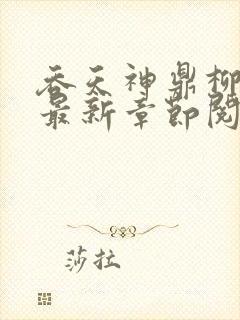 吞天神鼎柳
最新章节阅
莎拉